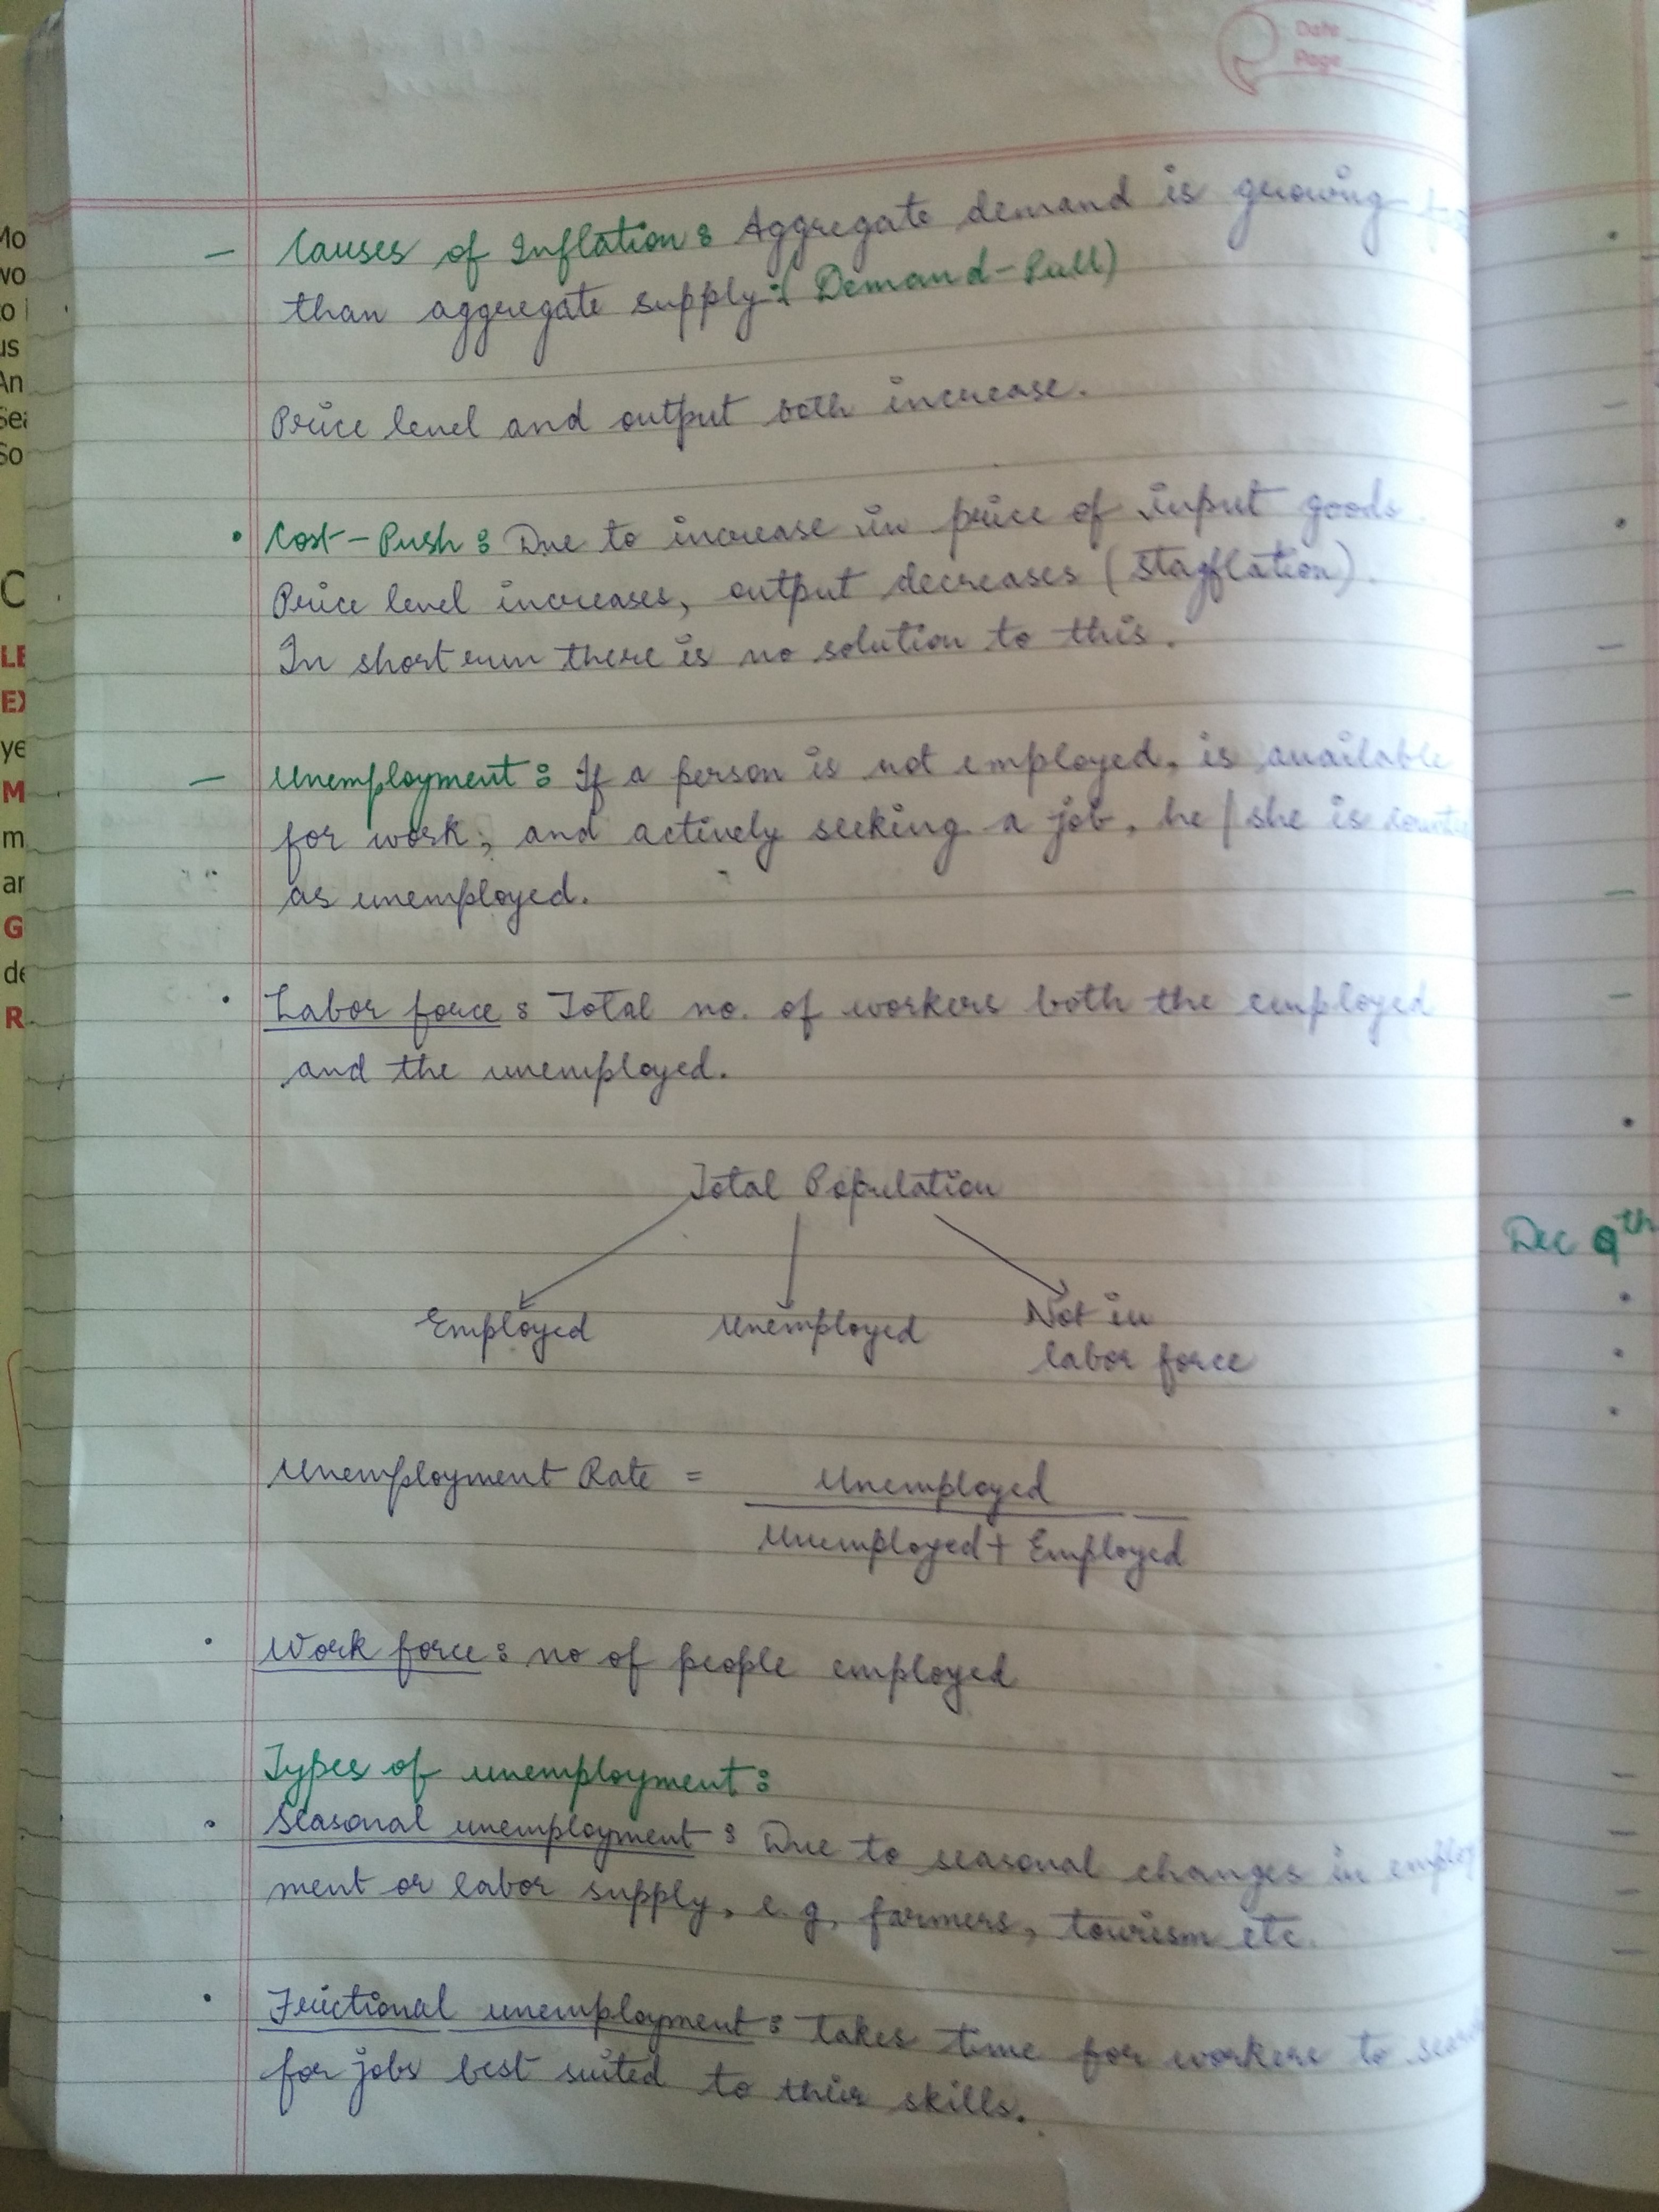 Date
Page
- Causes of Inflation : Aggregate demand is growing
than aggregate supply : (Demand-Pull)
Price level and output both increase.
• Cost-Push : Due to increase in price of input goods.
Price level increases, output decreases (stagflation).
In short run there is no solution to this.
- Unemployment : If a person is not employed, is available
for work, and actively seeking a job, he/she is
as unemployed.
• Labor force : Total no. of workers both the employed
and the unemployed.
Total Population
Employed Unemployed Not in
labor force
Unemployment Rate = Unemployed
Unemployed + Employed
• Work force : no of people employed
Types of unemployment :
• Seasonal unemployment : Due to seasonal changes in employ
ment or labor supply, e.g, farmers, tourism etc.
• Frictional unemployment : Takes time for workers to
for jobs best suited to their skills.
Dec 9th
Mo
wo
to
us
An
Sea
So
C
LE
EX
ye
M
m
ar
G
de
R